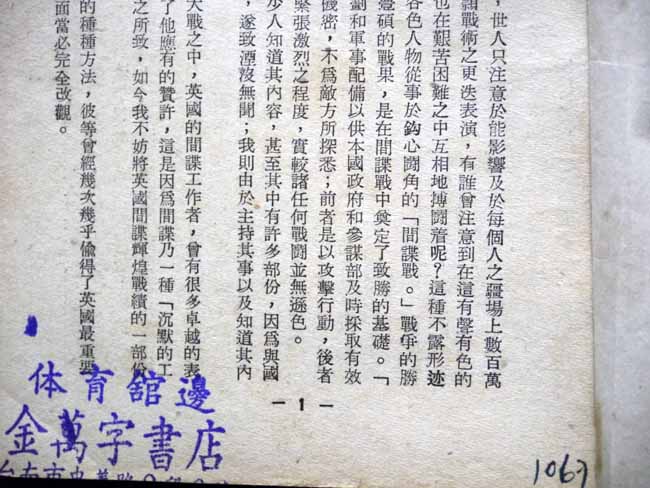 ，世人只注意於能影響及於每個人之疆場上數百萬
諸戰術之更迭表演，有誰曾注意到在這有聲有色的
也在艱苦困難之中互相地搏鬪着呢？這種不露形迹
各色人物從事於鈎心鬪角的「間諜戰。」戰爭的勝
豐碩的戰果，是在間諜戰中奠定了致勝的基礎。「
劃和軍事配備以供本國政府和參謀部及時採取有效
機密，不爲敵方所探悉；前者是以攻擊行動，後者
緊張激烈之程度，實較諸任何戰鬪並無遜色。
少人知道其內容，甚至其中有許多部份，因爲與國
，遂致湮沒無聞；我則由於主持其事以及知道其內
大戰之中，英國的間諜工作者，曾有很多卓越的表
了他應有的贊許，這是因爲間諜乃一種「沉默的工
之所致，如今我不妨將英國間諜輝煌戰績的一部份
的種種方法，彼等曾經幾次幾乎偷得了英國最重要
面當必完全改觀。
— 1 —
體育舘邊
金萬字書店
台南市忠義路
1067